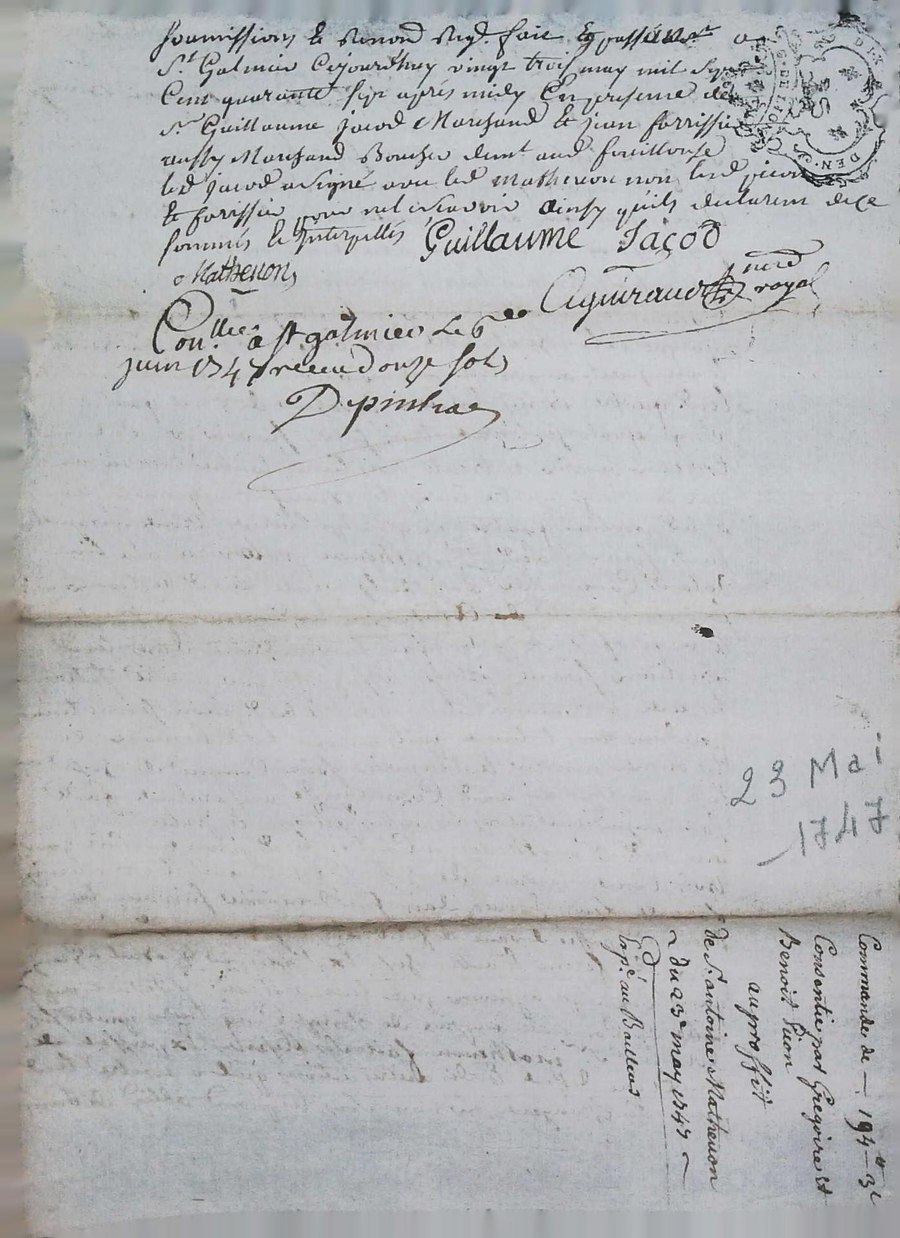 soumissions & Renon
fait & passé
St. Galmier Cejourdhuy vingt trois may mil sept
Cent quarante sept après midy En presence de
Sr. Guillaume jacod Marchand & jean forissier
aussy Marchand Boucher demt. aud fouillouse
led jacod a signé avec led Mathevon non
& forissier pour ne le scavoir ainsy quils declarent de ce
sommés & Interpellés Guillaume Jacod
Mathevon
royal
Conllé. a st galmier Le 6
juin 1747 receu douze sols
23 Mai
1747
Commande de — 194 tt 3
Consentie par Gregoire et
Benoit Picon
au proffit
de Sr. antoine Mathevon
du 23e may 1747
Expé. au Bailleur